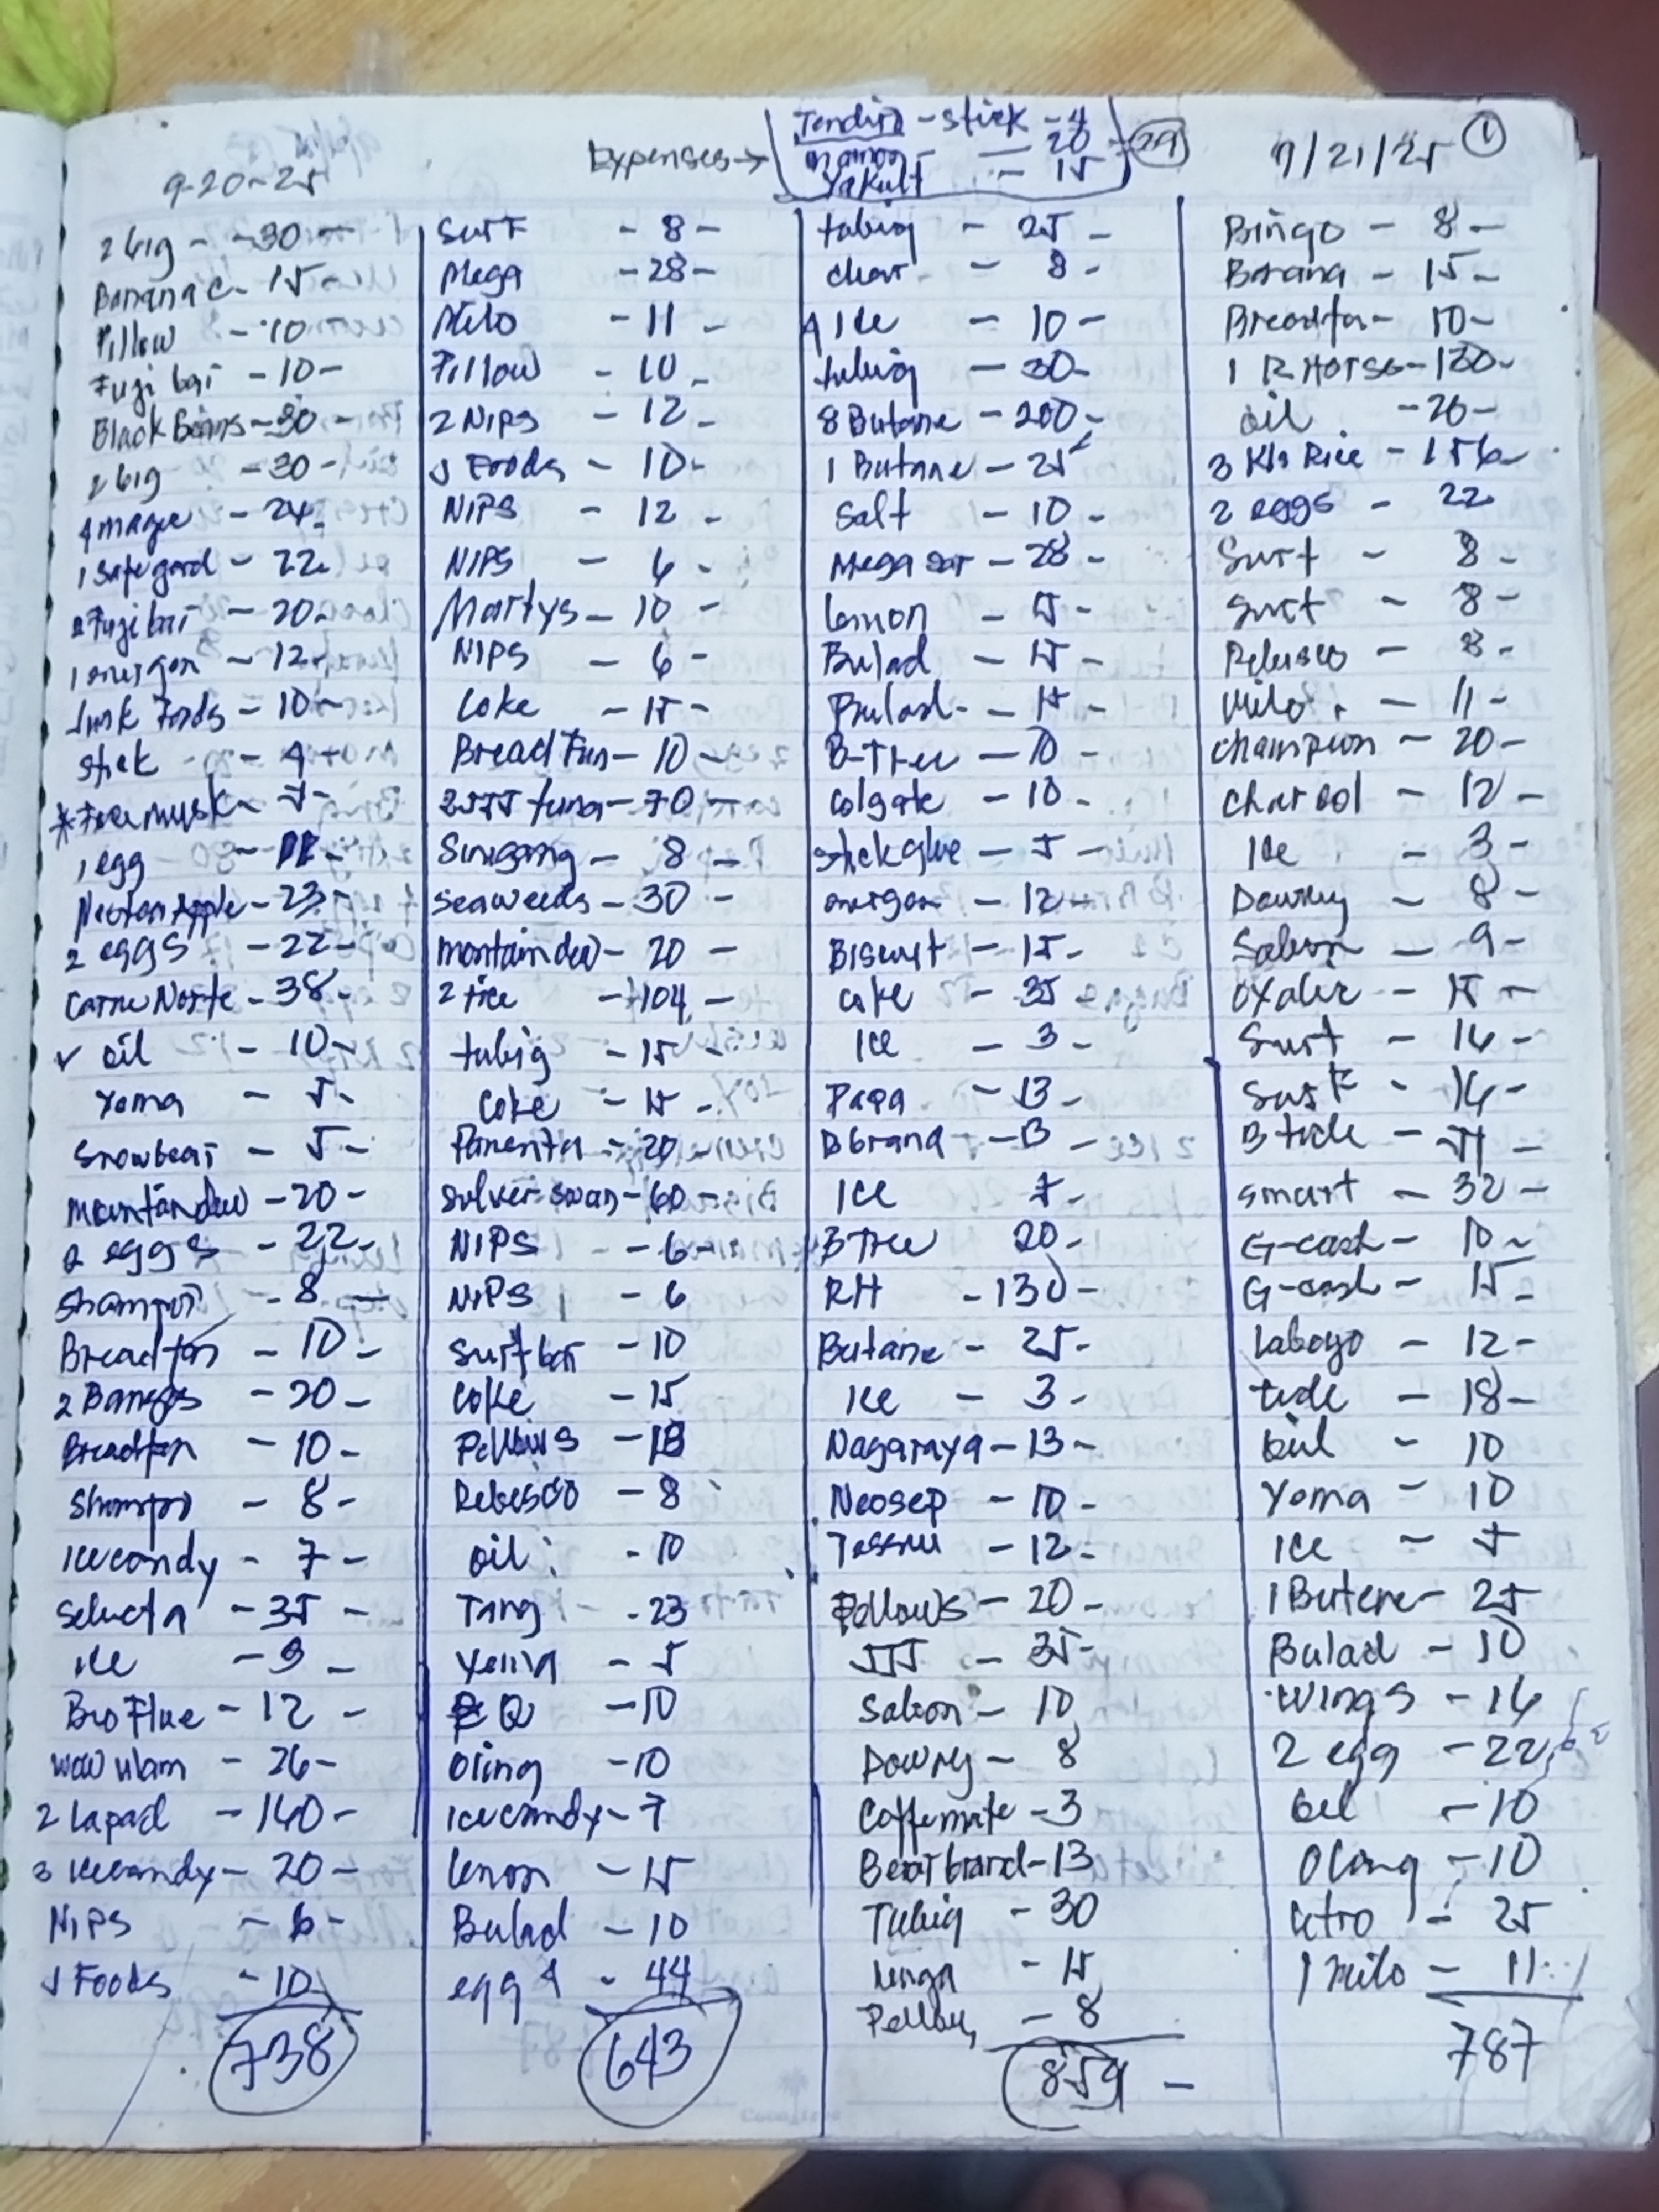 9-20-25
Expenses → Tendira - stick - 4
mamon - 20
Yakult - 15
39
9/21/25 1
2 big - 30 -
Banana c - 15 -
Pillow - 10
Fugi bar - 10 -
Black Beans - 30 -
2 big - 30 -
4 magic - 24 -
1 Safegard - 22 -
2 Fugi bar - 20 -
1 energen - 12 -
Junk Foods - 10 -
Stick - 4
1 egg - 11 -
Nectar Apple - 23 -
2 eggs - 22 -
Carne Norte - 38 -
✓ oil - 10 -
Yema - 5 -
Snowbear - 5 -
Mountandew - 20 -
2 eggs - 22 -
Shampoo - 8 -
Breadfan - 10 -
2 Bangos - 20 -
Breadfan - 10 -
Shampoo - 8 -
Icecandy - 7 -
Selecta - 35 -
Ice - 3 -
Bio Flue - 12 -
Wow ulam - 26 -
2 Lapad - 140 -
3 Icecandy - 20 -
NIPS - 6 -
J Foods - 10
738
Surf - 8 -
Mega - 28 -
Milo - 11 -
Pillow - 10 -
2 NIPS - 12 -
J Foods - 10 -
NIPS - 12 -
NIPS - 6 -
Martys - 10 -
NIPS - 6 -
Coke - 15 -
Bread Fun - 10 -
2 555 tuna - 70 -
Sinigang - 8 -
Seaweeds - 30 -
montaindew - 20 -
2 rice - 104 -
tubig - 15 -
Coke - 15 -
Paminta - 20 -
Silver swan - 60 -
NIPS - 6 -
NIPS - 6
Surf bar - 10
Coke - 15
Pellows - 18
Rebesco - 8
oil - 10
Tang - 23
Yema - 5
Q - 10
Oling - 10
Icecandy - 7
lemon - 15
Bulad - 10
egg 4 - 44
643
tubig - 25 -
char - 8 -
4 Ice - 10 -
tubig - 30 -
8 Butane - 200 -
1 Butane - 25
Salt - 10 -
Mega sar - 28 -
lemon - 15 -
Bulad - 15 -
Bulad - 15 -
B-Tree - 10 -
Colgate - 10 -
stickglue - 5 -
energen - 12 -
Biscuit - 15 -
Coke - 35 -
Ice - 3 -
Papa - 13 -
B brand - 13 -
ICE 7 -
B Tree 20 -
RH - 130 -
Butane - 25 -
Ice - 3 -
Nagaraya - 13 -
Neosep - 10 -
Tessue - 12 -
Pellows - 20 -
555 - 35 -
Sabon - 10
Downy - 8
Coffemate - 3
Bearbrand - 13
Tubig - 30
Lenga - 15
Pellow - 8
859 -
Bingo - 8 -
Banana - 15 -
Breadfan - 10 -
1 R Horse - 130 -
oil - 20 -
3 Kls Rice - 156
2 eggs - 22
Surf - 8 -
Surf - 8 -
Rebisco - 8 -
Milo - 11 -
Champion - 20 -
Charcol - 12 -
Ice - 3 -
Downy - 8 -
Sabon - 9 -
Oxalis - 15 -
Surf - 16 -
Surf - 16 -
B tide - 51 -
Smart - 32 -
G-cash - 10 -
G-cash - 15 -
Laboyo - 12 -
tide - 18 -
oil - 10
Yema - 10
Ice - 5
1 Butene - 25
Bulad - 10
Wings - 16
2 egg - 22
oil - 10
Oling - 10
Citro - 25
1 milo - 11
787